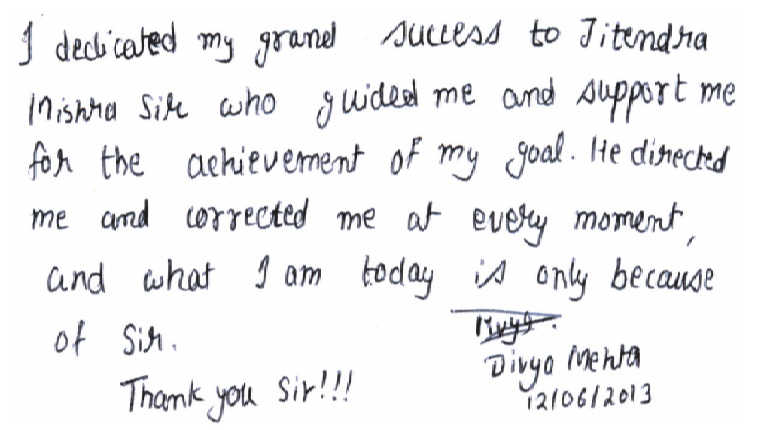 I dedicated my grand success to Jitendra
Mishra Sir who guided me and support me
for the achievement of my goal. He directed
me and corrected me at every moment,
and what I am today is only because
of Sir.
Divya Mehta
Thank you Sir!!!
12/06/2013